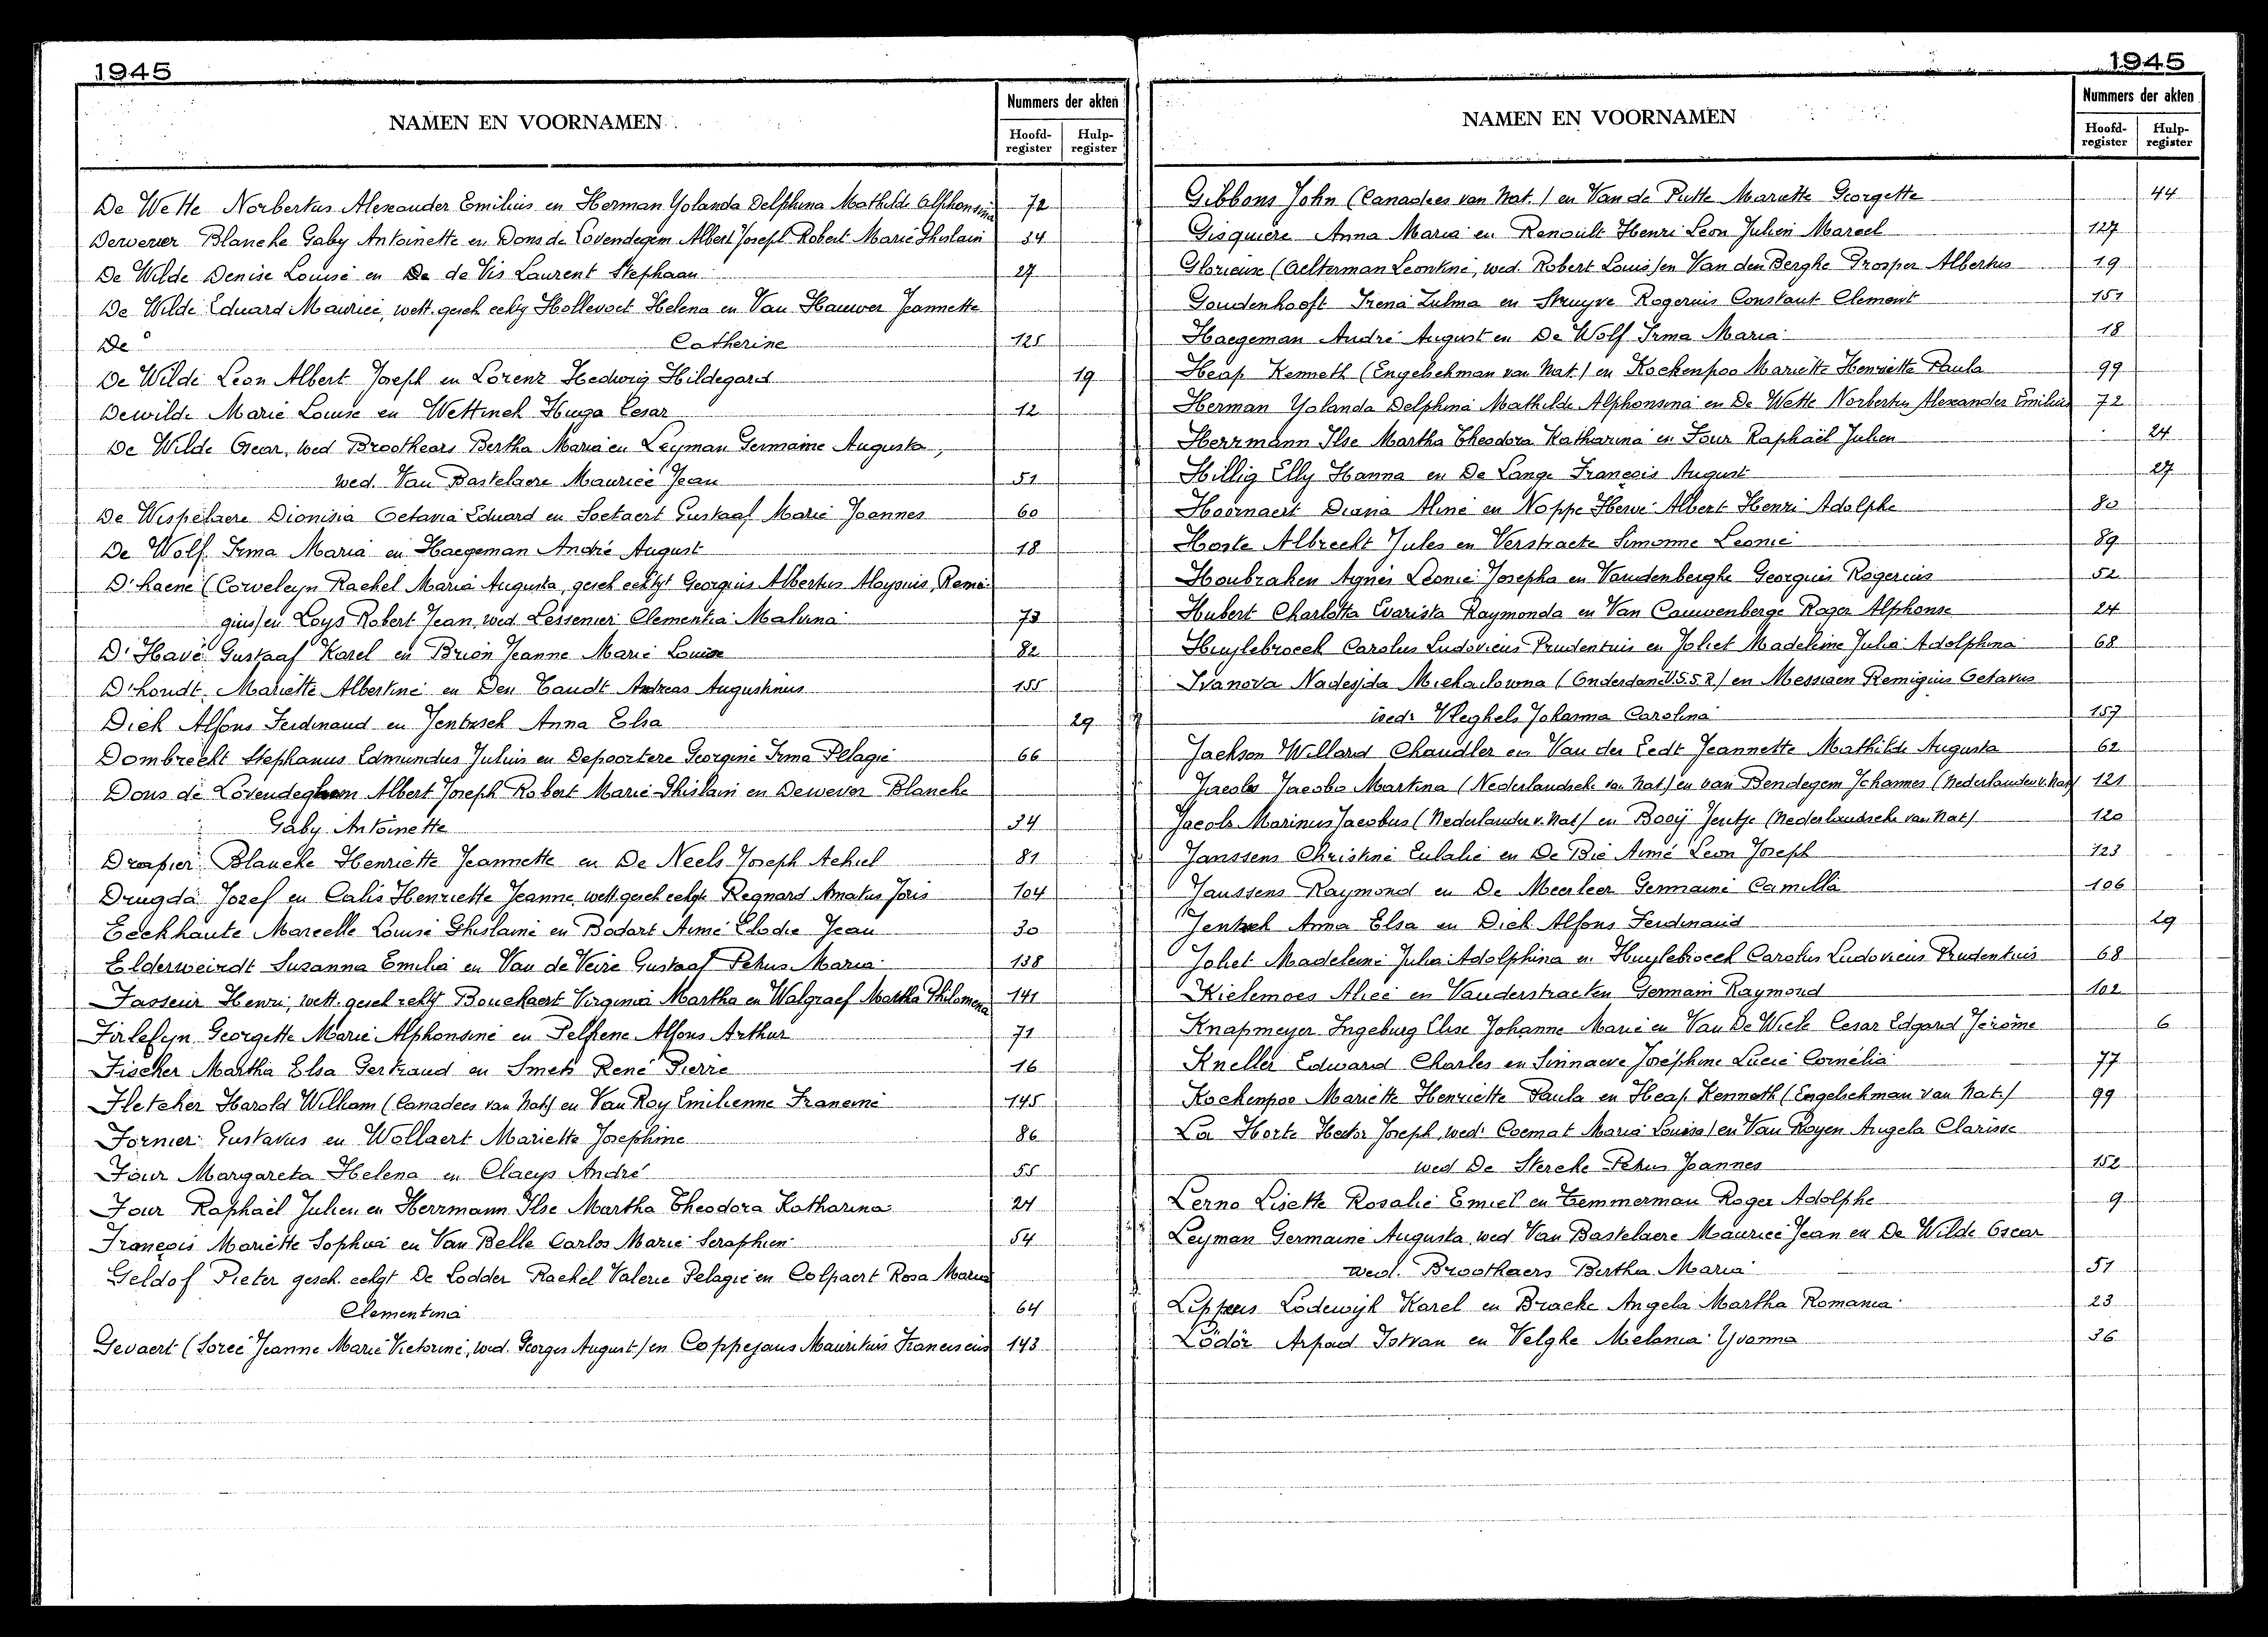 1945
NAMEN EN VOORNAMEN
Nummers der akten
Hoofd-register Hulp-register
De Wette Norbertus Alexander Emilius en Herman Yolanda Delphina Mathilde Alphonsina 72
Dewever Blanche Gaby Antoinette en Dons de Lovendegem Albert Joseph Robert Marie Ghislain 34
De Wilde Denise Louise en De de Vis Laurent Stephaan 27
De Wilde Eduard Maurice, wett. gesch echtg Hollevoet Helena en Van Hauwer Jeannette
De Catherine 125
De Wilde Leon Albert Joseph en Lorenz Hedwig Hildegard 19
Dewilde Marie Louise en Wettinck Hugo Cesar 12
De Wilde Oscar, wed Broothears Bertha Maria en Leyman Germaine Augusta,
wed. Van Bastelaere Maurice Jean 51
De Wispelaere Dionisia Octavia Eduard en Soetaert Gustaaf Marie Joannes 60
De Wolf Irma Maria en Haegeman André August 18
D'haene (Corveleyn Rachel Maria Augusta, gesch echtgt Georgius Albertus Aloysius, Remi-
gius) en Loys Robert Jean, wed. Lessenier Clementia Malvina 73
D'Havé Gustaaf Karel en Brion Jeanne Marie Louise 82
D'hondt Mariette Albertine en Den Tandt Andreas Augustinus 155
Dick Alfons Ferdinand en Jentzsch Anna Elsa 29
Dombrecht Stephanus Edmundus Julius en Depoortere Georgine Irma Pelagie 66
Dons de Lovendeghem Albert Joseph Robert Marie Ghislain en Dewever Blanche
Gaby Antoinette 34
Drapier Blanche Henriette Jeannette en De Neels Joseph Achiel 81
Drugda Jozef en Calis Henriette Jeanne, wett gesch echtgte Regnard Amatus Joris 104
Eeckhaute Marcelle Louise Ghislaine en Bodart Aimé Elodie Jean 30
Elderweirdt Susanna Emilia en Van de Veire Gustaaf Petrus Maria 138
Fasseur Henri, wett. gesch echtg Bouckaert Virginia Martha en Walgraef Martha Philomena 141
Firlefyn Georgette Marie Alphonsine en Pelfrene Alfons Arthur 71
Fischer Martha Elsa Gertraud en Smets René Pierre 16
Fletcher Harold William (Canadees van Nat) en Van Roy Emilienne Francine 145
Fornier Gustavus en Wollaert Mariette Josephine 86
Four Margareta Helena en Claeys André 55
Four Raphaël Julien en Herrmann Ilse Martha Theodora Katharina 24
François Mariette Sophia en Van Belle Carlos Marie Seraphien 54
Geldof Pieter gesch. echgt De Lodder Rachel Valerie Pelagie en Colpaert Rosa Maria
Clementina 64
Gevaert (Soree Jeanne Marie Victorine, wed. Georges August) en Coppejans Mauritius Franciscus 143
1945
NAMEN EN VOORNAMEN
Nummers der akten
Hoofd-register Hulp-register
Gibbons John (Canadees van Nat.) en Van de Putte Mariette Georgette 44
Gisquiere Anna Maria en Renoult Henri Leon Julien Marcel 127
Glorieuse (Aelterman Leontine, wed. Robert Louis) en Van den Berghe Prosper Albertus 19
Goudenhooft Irena Zulma en Struyve Rogerius Constant Clement 151
Haegeman André August en De Wolf Irma Maria 18
Heap Kenneth (Engelschman van Nat.) en Kockenpoo Mariette Henriette Paula 99
Herman Yolanda Delphina Mathilde Alphonsina en De Wette Norbertus Alexander Emilius 72
Herrmann Ilse Martha Theodora Katharina en Four Raphaël Julien 24
Hillig Elly Hanna en De Lange François August 27
Hoornaert Diana Aline en Noppe Hervé Albert Henri Adolphe 80
Hoste Albrecht Jules en Verstraete Simonne Leonie 89
Houbraken Agnes Leonie Josepha en Vandenberghe Georgius Rogerius 52
Hubert Charlotta Evarista Raymonda en Van Cauwenberge Roger Alphonse 24
Huylebroeck Carolus Ludovicus Prudentius en Joliet Madeleine Julia Adolphina 68
Ivanova Nadejda Michaelowna (Onderdan U.S.S.R) en Messiaen Remigius Octavus
wedr Vleghels Johanna Carolina 157
Jackson Willard Chandler en Van der Eedt Jeannette Mathilde Augusta 62
Jacobs Jacoba Martina (Nederlandsche van Nat) en van Bendegem Johannes (Nederlander v. Nat) 121
Jacobs Marinus Jacobus (Nederlander v. Nat) en Booij Jentje (Nederlandsche van Nat) 120
Janssens Christine Eulalie en De Bie Aimé Leon Joseph 123
Janssens Raymond en De Meerleer Germaine Camilla 106
Jentzsch Anna Elsa en Dick Alfons Ferdinand 29
Joliet Madeleine Julia Adolphina en Huylebroeck Carolus Ludovicus Prudentius 68
Kielemoes Alice en Vanderstraeten Germain Raymond 102
Knapmeyer Ingeburg Elise Johanne Marie en Van De Wiele Cesar Edgard Jérôme 6
Kneller Edward Charles en Sinnaeve Joséphine Lucie Cornélia 77
Kockenpoo Mariette Henriette Paula en Heap Kenneth (Engelschman van Nat.) 99
La Horte Hector Joseph, wedr Coemat Maria Louisa) en Van Royen Angela Clarisse
wed De Stercke Petrus Joannes 152
Lerno Lisette Rosalie Emiel en Temmerman Roger Adolphe 9
Leyman Germaine Augusta, wed Van Bastelaere Maurice Jean en De Wilde Oscar
wed. Broothaers Bertha Maria 51
Lippens Lodewijk Karel en Bracke Angela Martha Romania 23
Lödör Arpad Istvan en Velghe Melania Yvonna 36